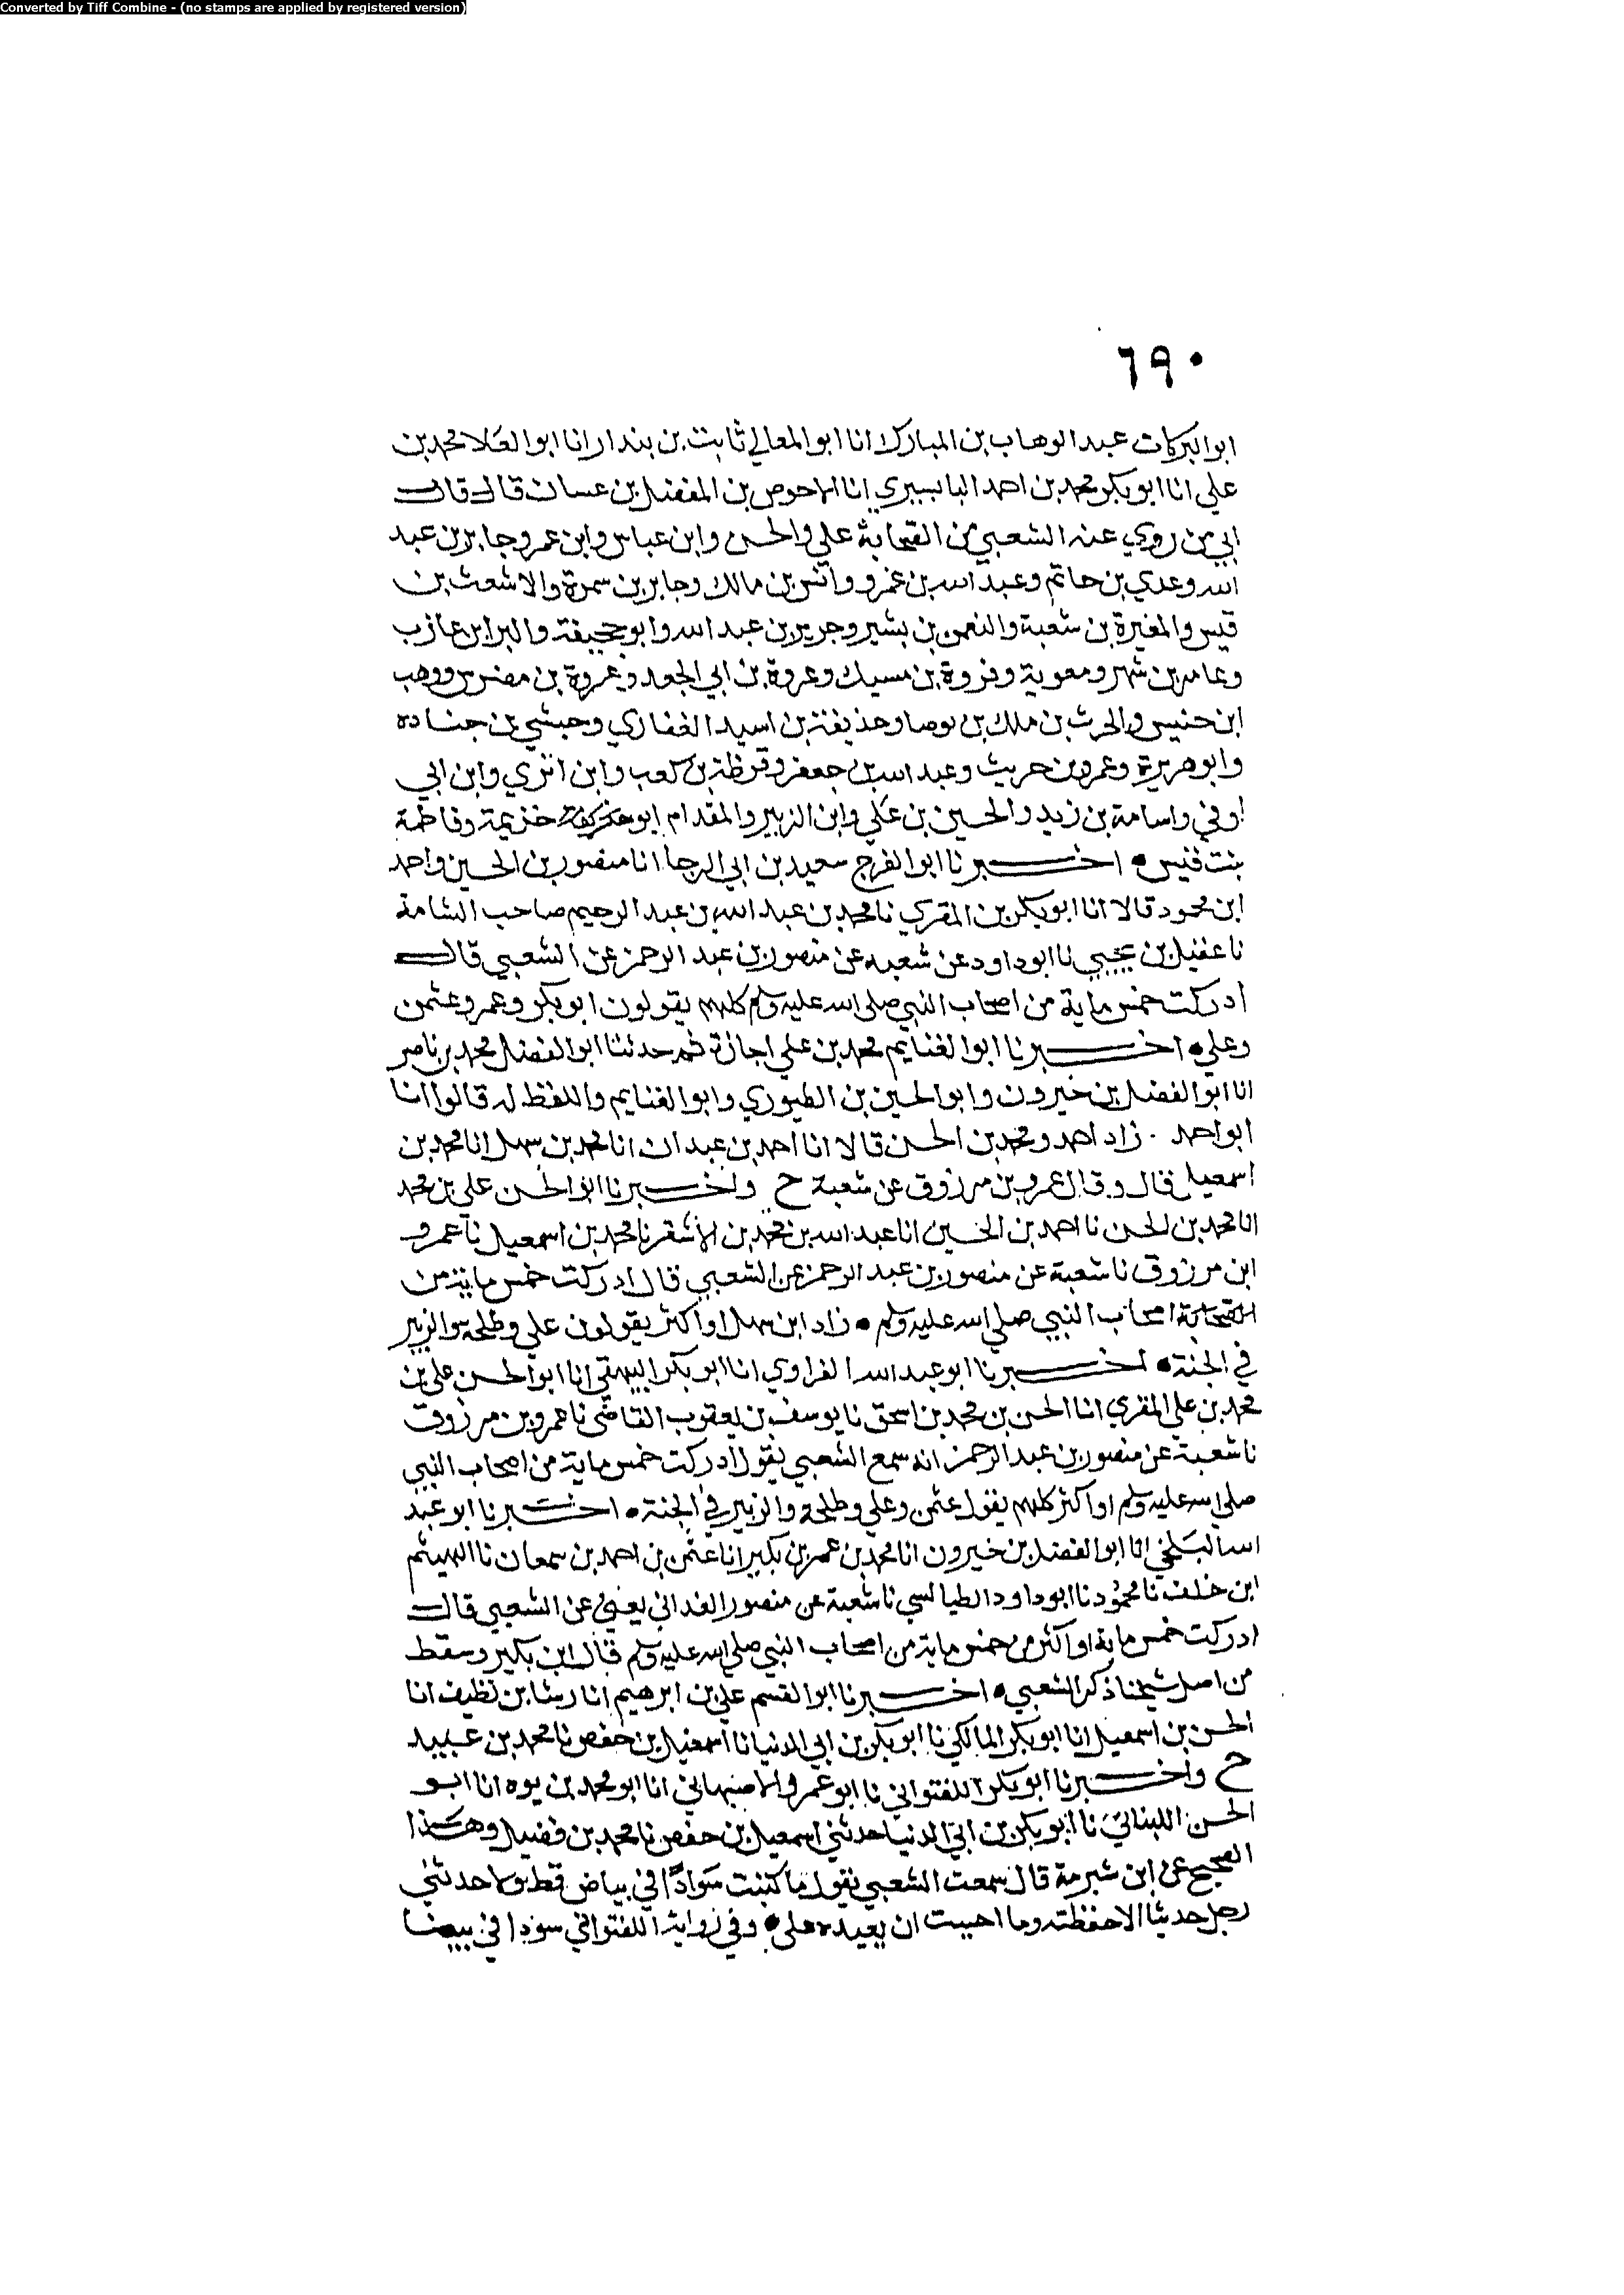 Converted by Tiff Combine - (no stamps are applied by registered version)
٦٩٠
ابو البركات عبد الوهاب بن المبارك انا ابو المعالي ثابت بن بندار انا ابو العلا محمد بن
علي انا ابو بكر محمد بن احمد البابسيري انا الاحوص بن المفضل بن غسان قال قال
ابي من روي عنه الشعبي من الصحابة علي والحسن وابن عباس وابن عمر وجابر بن عبد
الله وعدي بن حاتم وعبد الله بن عمرو وانس بن مالك وجابر بن سمرة والاشعث بن
قيس والمغيرة بن شعبة والنعمن بن بشير وجرير بن عبد الله وابو جحيفة والبرا بن عازب
وعامر بن شهر ومعوية وفروة بن مسيك وعروة بن ابي الجعد وعروة بن مضرس ووهب
ابن خنبس والحرث بن ملك بن بوصا وحذيفة بن اسيد الغفاري وحبشي بن جناده
وابو هريرة وعمرو بن حريث وعبد الله بن جعفر وقرظة بن كعب وابن ابزي وابن ابي
اوفي واسامة بن زيد والحسين بن علي وابن الزبير والمقدام ابو كريمة خزيمة وفاطمة
بنت قيس • اخـــبرنا ابو الفرج سعيد بن ابي الرجا انا منصور بن الحسين واحمد
ابن محمود قالا انا ابو بكر بن المقري نا محمد بن عبد الله بن عبد الرحيم صاحب الشامة
نا عقيل بن يحيي نا ابو داود عن شعبه عن منصور بن عبد الرحمن عن الشعبي قال
ادركت خمس ماية من اصحاب النبي صلى الله عليه وسلم كلهم يقولون ابو بكر وعمر وعثمن
وعلي • اخـــبرنا ابو الغنايم محمد بن علي اجازة ثم حدثنا ابو الفضل محمد بن ناصر
انا ابو الفضل بن خيرون وابو الحسين بن الطيوري وابو الغنايم واللفظ له قالوا انا
ابو احمد . زاد احمد ومحمد بن الحسن قالا انا احمد بن عبدان انا محمد بن سهل انا محمد بن
اسمعيل قال وقال عمرو بن مرزوق عن شعبة ح واخـــبرنا ابو الحسن علي بن محمد
انا محمد بن الحسن نا احمد بن الحسين انا عبد الله بن محمد بن الاشقر نا محمد بن اسمعيل نا عمرو
ابن مرزوق نا شعبة عن منصور بن عبد الرحمن عن الشعبي قال ادركت خمس ماية من
الصحابة اصحاب النبي صلى الله عليه وسلم • زاد ابن سهل او اكثر يقولون علي وطلحة والزبير
في الجنة • اخـــبرنا ابو عبد الله الفراوي انا ابو بكر البيهقي انا ابو الحسن علي بن
محمد بن علي المقري انا الحسن بن محمد بن اسحق نا يوسف بن يعقوب القاضي نا عمرو بن مرزوق
نا شعبة عن منصور بن عبد الرحمن انه سمع الشعبي يقول ادركت خمس ماية من اصحاب النبي
صلى الله عليه وسلم او اكثر كلهم يقول عثمن وعلي وطلحة والزبير في الجنة • اخـــبرنا ابو عبد
الله البلخي انا ابو الفضل بن خيرون انا محمد بن عمر بن بكير انا عثمن بن احمد بن سمعان نا الهيثم
ابن خلف نا محمود نا ابو داود الطيالسي نا شعبة عن منصور الغداني يعني عن الشعبي قال
ادركت خمس ماية او اكثر من خمس ماية من اصحاب النبي صلى الله عليه وسلم قال ابن بكير وسقط
من اصل شيخنا ذكر الشعبي • اخـــبرنا ابو القسم علي بن ابرهيم انا رشا بن نظيف انا
الحسن بن اسمعيل انا ابو بكر المالكي نا ابو بكر بن ابي الدنيا نا اسمعيل بن حفص نا محمد بن عبيد
ح واخـــبرنا ابو بكر اللفتواني نا ابو عمرو الاصبهاني انا ابو محمد بن يوه انا ابو
الحسن اللبناني نا ابو بكر بن ابي الدنيا حدثني اسمعيل بن حفص نا محمد بن فضيل وهكذا
الصحيح عن ابن شبرمة قال سمعت الشعبي يقول ما كتبت سوادا في بياض قط ولا حدثني
رجل حديثا الا حفظته وما احببت ان يعيده علي • وفي رواية اللفتواني سودا في بيضا